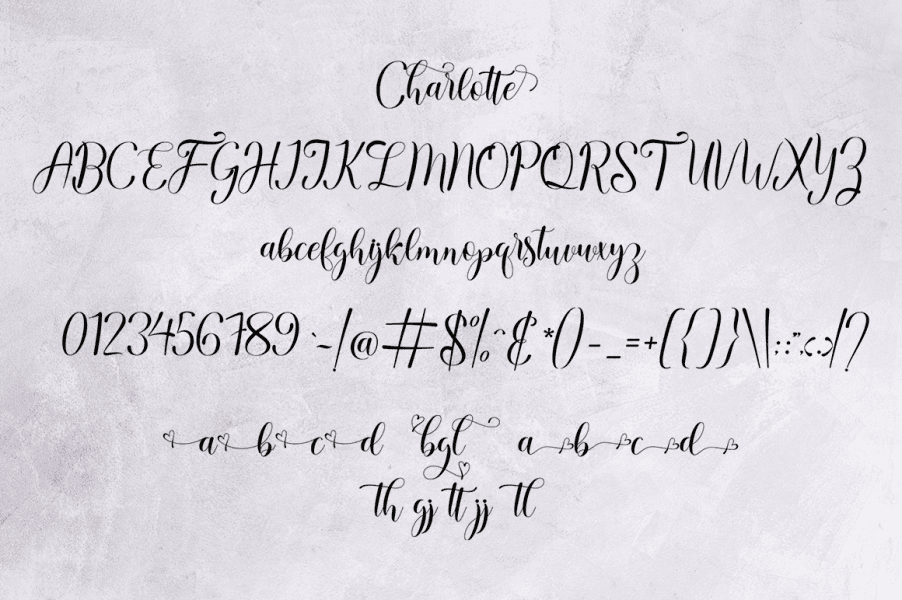 Charlotte
ABCEFGHIJKLMNOPQRSTUVWXYZ
abcefghijklmnopqrstuvwxyz
0123456789 `~/@#$%^&*()-_=+[{()}]\|:;"',<.>/?
a b c d bgl a b c d
th gj tt jj tl